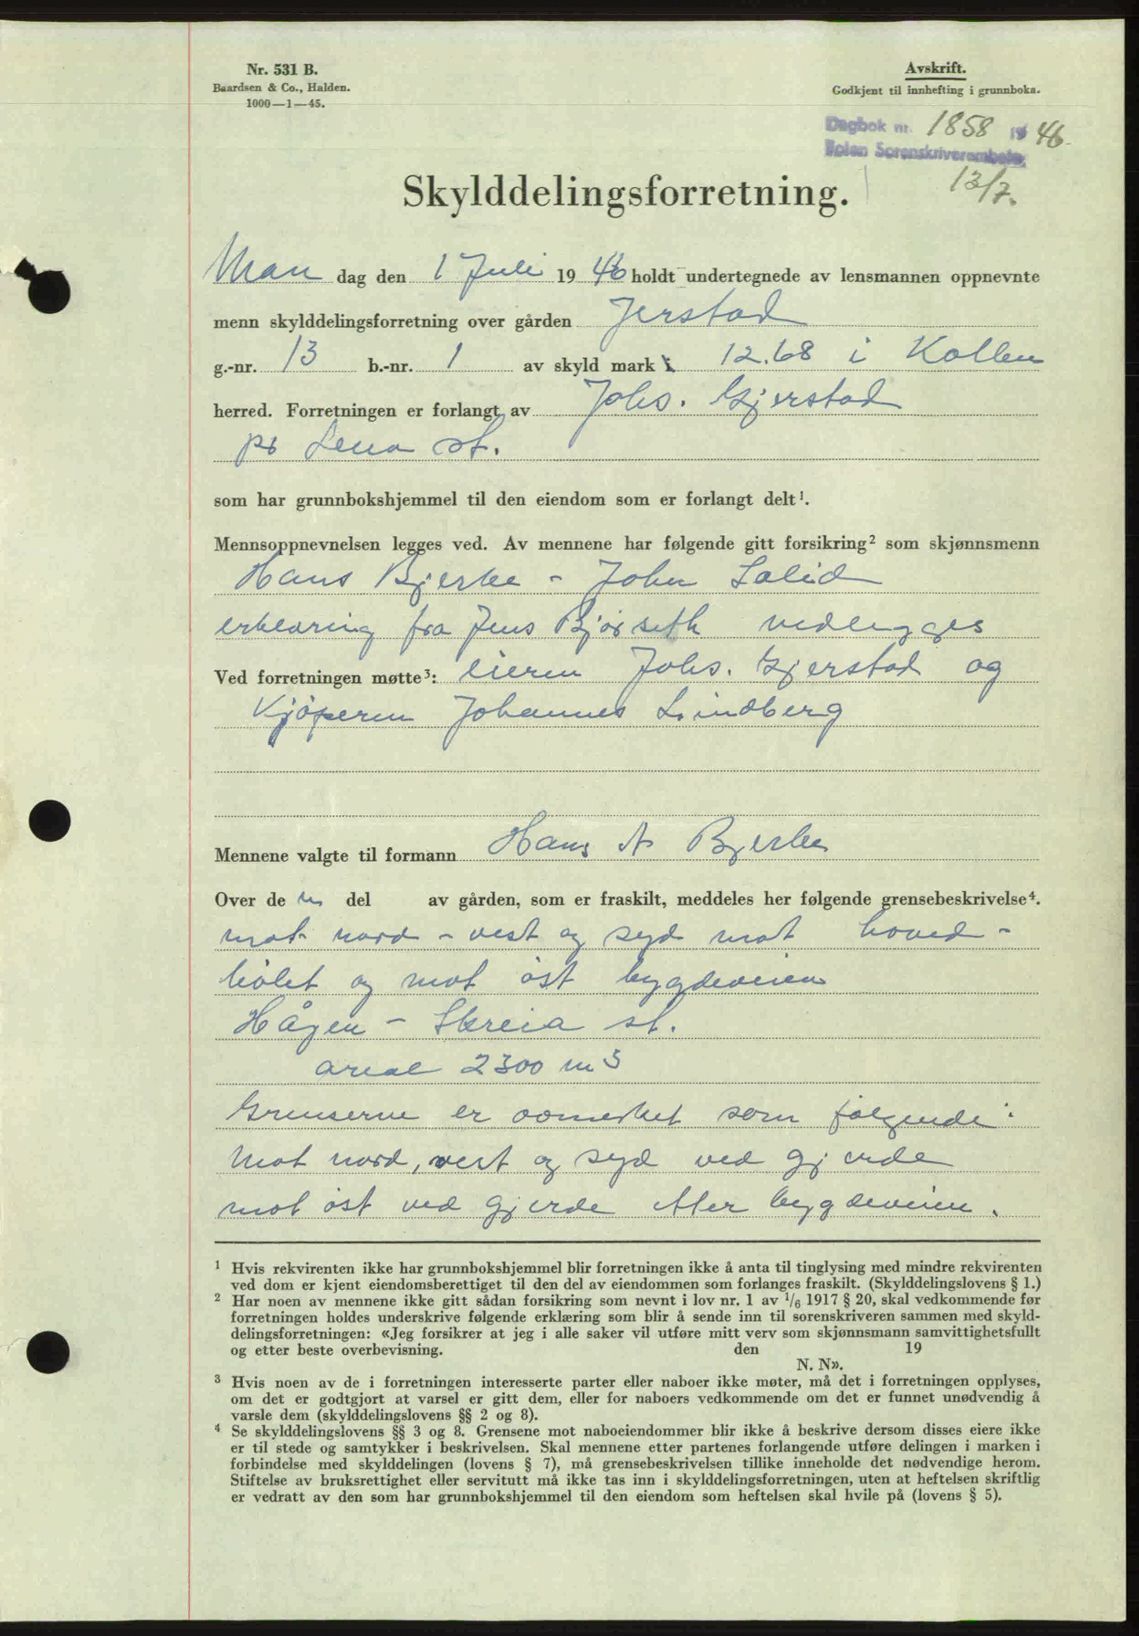 Nr. 531 B.
Baardsen & Co., Halden.
1000—1—45.
Avskrift.
Godkjent til innhefting i grunnboka.
Dagbok nr. 1858 19 46.
Toten Sorenskriverembete
13/7.
Skylddelingsforretning.
Man dag den 1 Juli 19 46 holdt undertegnede av lensmannen oppnevnte
menn skylddelingsforretning over gården Jerstad
g.-nr. 13 b.-nr. 1 av skyld mark 12.68 i Kolbu
herred. Forretningen er forlangt av Johs. Gjerstad
pr Lena st.
som har grunnbokshjemmel til den eiendom som er forlangt delt¹.
Mennsoppnevnelsen legges ved. Av mennene har følgende gitt forsikring² som skjønnsmenn
Hans Bjerke - John Solid
erklæring fra Jens Bjørseth vedlegges
Ved forretningen møtte³: eieren Johs. Gjerstad og
Kjøperen Johannes Lindberg
Mennene valgte til formann Hans A Bjerke
Over de n del av gården, som er fraskilt, meddeles her følgende grensebeskrivelse⁴.
mot nord - vest og syd mot hoved-
bølet og mot øst bygdeveien
Hågen - Skreia st.
areal 2300 m3
Grenserne er som følgende:
Mot nord, vest og syd ved gjerde
mot øst ved gjerde etter bygdeveien.
¹ Hvis rekvirenten ikke har grunnbokshjemmel blir forretningen ikke å anta til tinglysing med mindre rekvirenten
ved dom er kjent eiendomsberettiget til den del av eiendommen som forlanges fraskilt. (Skylddelingslovens § 1.)
² Har noen av mennene ikke gitt sådan forsikring som nevnt i lov nr. 1 av 1/6 1917 § 20, skal vedkommende før
forretningen holdes underskrive følgende erklæring som blir å sende inn til sorenskriveren sammen med skyld-
delingsforretningen: «Jeg forsikrer at jeg i alle saker vil utføre mitt verv som skjønnsmann samvittighetsfullt
og etter beste overbevisning. den 19
N. N».
³ Hvis noen av de i forretningen interesserte parter eller naboer ikke møter, må det i forretningen opplyses,
om det er godtgjort at varsel er gitt dem, eller for naboers vedkommende om det er funnet unødvendig å
varsle dem (skylddelingslovens §§ 2 og 8).
⁴ Se skylddelingslovens §§ 3 og 8. Grensene mot naboeiendommer blir ikke å beskrive dersom disses eiere ikke
er til stede og samtykker i beskrivelsen. Skal mennene etter partenes forlangende utføre delingen i marken i
forbindelse med skylddelingen (lovens § 7), må grensebeskrivelsen tillike inneholde det nødvendige herom.
Stiftelse av bruksrettighet eller servitutt må ikke tas inn i skylddelingsforretningen, uten at heftelsen skriftlig
er vedratt av den som har grunnbokshjemmel til den eiendom som heftelsen skal hvile på (lovens § 5).